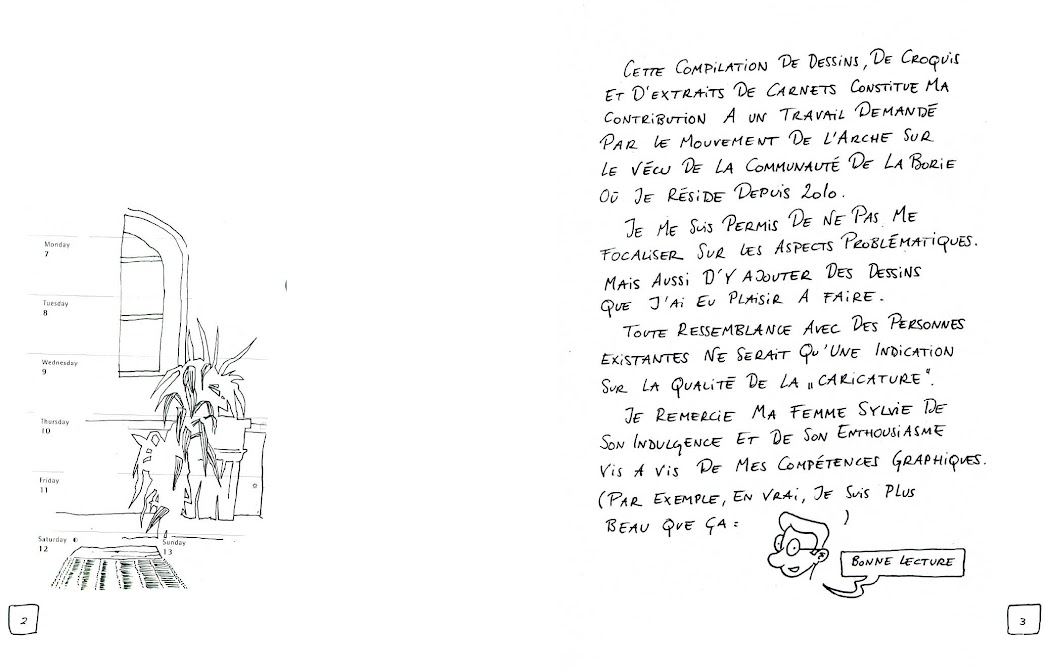 Monday
7
Tuesday
8
Wednesday
9
Thursday
10
Friday
11
Saturday
12
Sunday
13
2
CETTE COMPILATION DE DESSINS, DE CROQUIS
ET D'EXTRAITS DE CARNETS CONSTITUE MA
CONTRIBUTION A UN TRAVAIL DEMANDÉ
PAR LE MOUVEMENT DE L'ARCHE SUR
LE VÉCU DE LA COMMUNAUTÉ DE LA BORIE
OÙ JE RÉSIDE DEPUIS 2010.
JE ME SUIS PERMIS DE NE PAS ME
FOCALISER SUR LES ASPECTS PROBLÉMATIQUES.
MAIS AUSSI D'Y AJOUTER DES DESSINS
QUE J'AI EU PLAISIR A FAIRE.
TOUTE RESSEMBLANCE AVEC DES PERSONNES
EXISTANTES NE SERAIT QU'UNE INDICATION
SUR LA QUALITÉ DE LA „CARICATURE“.
JE REMERCIE MA FEMME SYLVIE DE
SON INDULGENCE ET DE SON ENTHOUSIASME
VIS A VIS DE MES COMPÉTENCES GRAPHIQUES.
(PAR EXEMPLE, EN VRAI, JE SUIS PLUS
BEAU QUE ÇA : )
BONNE LECTURE
3